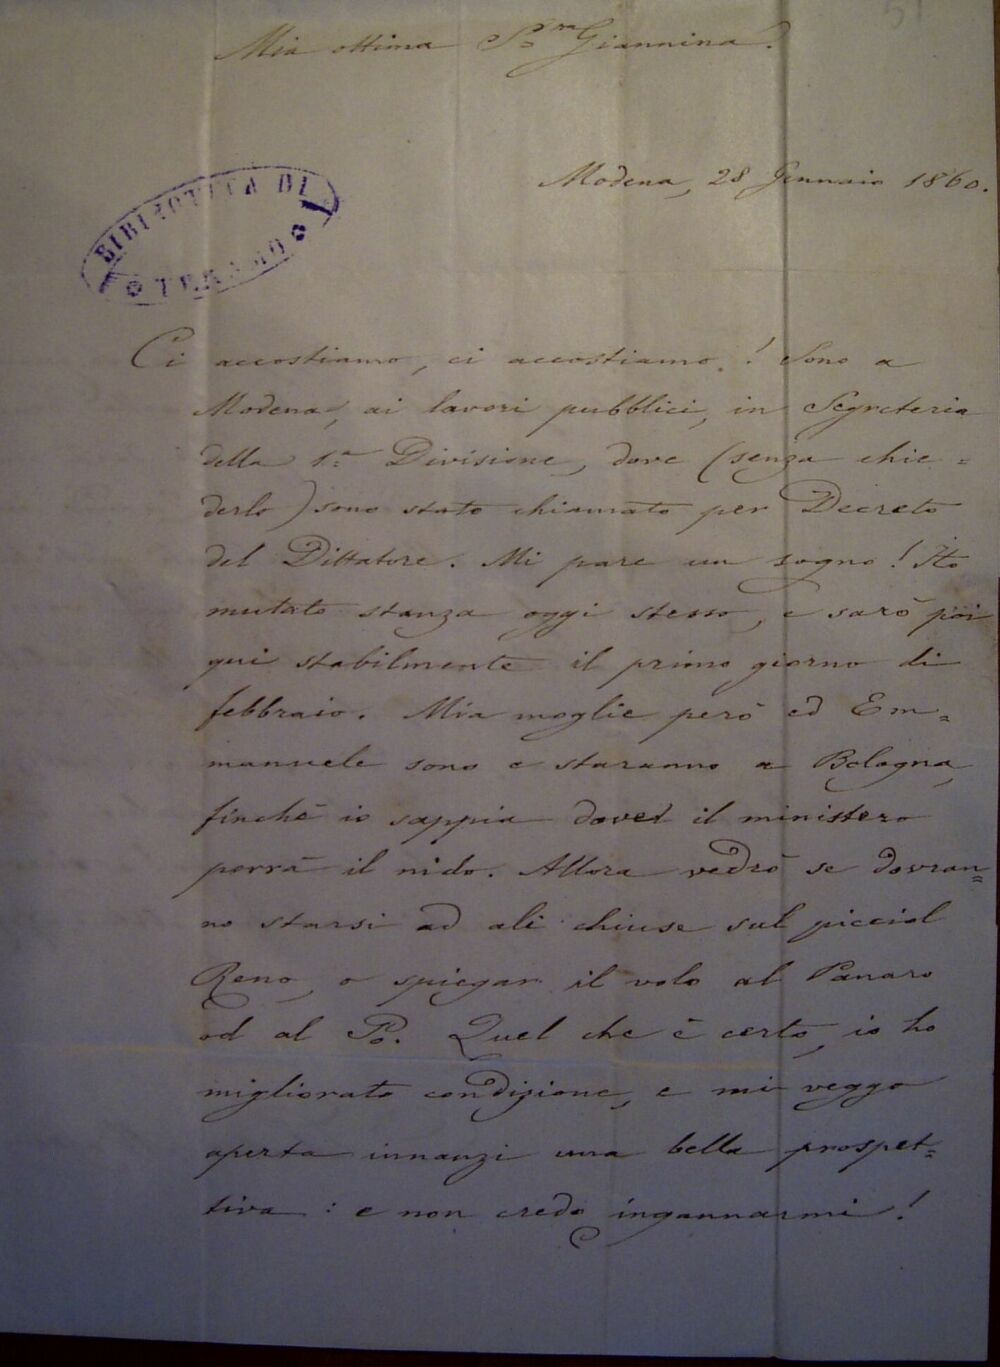 51
Mia ottima S.ra Giannina.
Modena, 28 Gennaio 1860.
BIBLIOTECA DI
TERAMO
Ci accostiamo, ci accostiamo! Sono a
Modena, ai lavori pubblici, in Segreteria
della 1.a Divisione, dove (senza chie=
derlo) sono stato chiamato per Decreto
del Dittatore. Mi pare un sogno! Ho
mutato stanza oggi stesso, e sarò poi
qui stabilmente il primo giorno di
febbraio. Mia moglie però ed Em=
manuele sono e staranno a Bologna,
finchè io sappia dove il ministero
porrà il nido. Allora vedrò se dovran=
no starsi ad ali chiuse sul picciol
Reno, o spiegar il volo al Panaro
od al Po. Quel che è certo, io ho
migliorato condizione, e mi veggo
aperta innanzi una bella prospet=
tiva: e non credo ingannarmi!